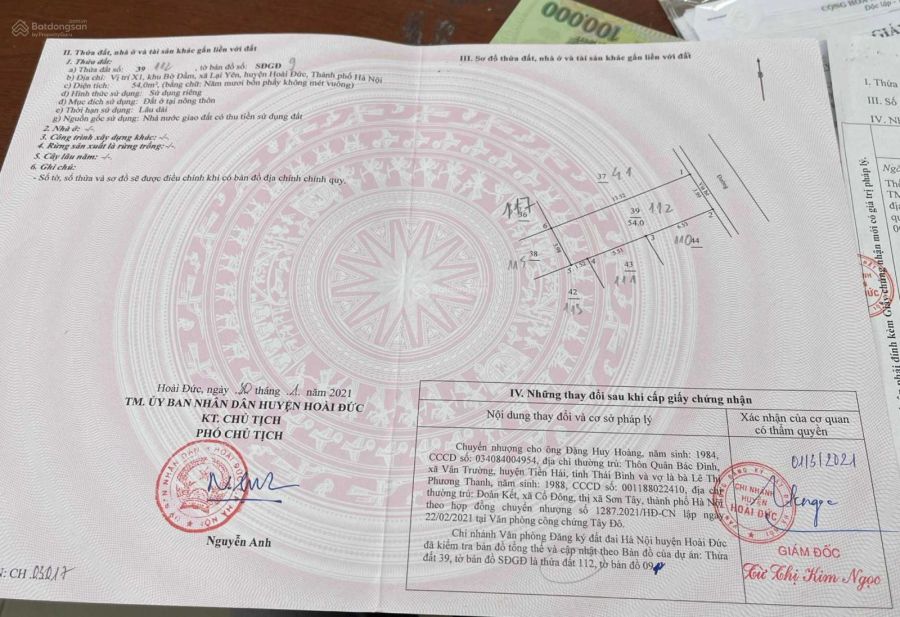 Batdongsan
by PropertyGuru
100.000
II. Thửa đất, nhà ở và tài sản khác gắn liền với đất
1. Thửa đất:
a) Thửa đất số: 39 112, tờ bản đồ số: SĐGD 9
b) Địa chỉ: Vị trí X1, khu Bờ Đầm, xã Lại Yên, huyện Hoài Đức, Thành phố Hà Nội
c) Diện tích: 54,0m², (bằng chữ: Năm mươi bốn phẩy không mét vuông)
d) Hình thức sử dụng: Sử dụng riêng
đ) Mục đích sử dụng: Đất ở tại nông thôn
e) Thời hạn sử dụng: Lâu dài
g) Nguồn gốc sử dụng: Nhà nước giao đất có thu tiền sử dụng đất
2. Nhà ở: -/-
3. Công trình xây dựng khác: -/-
4. Rừng sản xuất là rừng trồng: -/-
5. Cây lâu năm: -/-
6. Ghi chú:
- Số tờ, số thửa và sơ đồ sẽ được điều chỉnh khi có bản đồ địa chính chính quy.
III. Sơ đồ thửa đất, nhà ở và tài sản khác gắn liền với đất
37 41
1
13.52
Đường
117
36
6
39 112
54.0
2
6.53
3
110 44
5.51
38
115
5
1.52
4
43
111
42
113
Hoài Đức, ngày 20 tháng 1 năm 2021
TM. ỦY BAN NHÂN DÂN HUYỆN HOÀI ĐỨC
KT. CHỦ TỊCH
PHÓ CHỦ TỊCH
Nguyễn Anh
CH 03017
IV. Những thay đổi sau khi cấp giấy chứng nhận
Nội dung thay đổi và cơ sở pháp lý
Xác nhận của cơ quan
có thẩm quyền
Chuyển nhượng cho ông Đặng Huy Hoàng, năm sinh: 1984,
CCCD số: 034084004954, địa chỉ thường trú: Thôn Quân Bắc Đình,
xã Vân Trường, huyện Tiền Hải, tỉnh Thái Bình và vợ là bà Lê Thị
Phương Thanh, năm sinh: 1988, CCCD số: 001188022410, địa chỉ
thường trú: Đoàn Kết, xã Cổ Đông, thị xã Sơn Tây, thành phố Hà Nội
theo hợp đồng chuyển nhượng số 1287.2021/HĐ-CN lập ngày
22/02/2021 tại Văn phòng công chứng Tây Đô.
Chi nhánh Văn phòng Đăng ký đất đai Hà Nội huyện Hoài Đức
đã kiểm tra bản đồ tổng thể và cập nhật theo Bản đồ của dự án: Thửa
đất 39, tờ bản đồ SĐGD là thửa đất 112, tờ bản đồ 09
01/3/2021
CHI NHÁNH
HUYỆN
HOÀI ĐỨC
GIÁM ĐỐC
Từ Thị Kim Ngọc
I. Thửa
III. Số